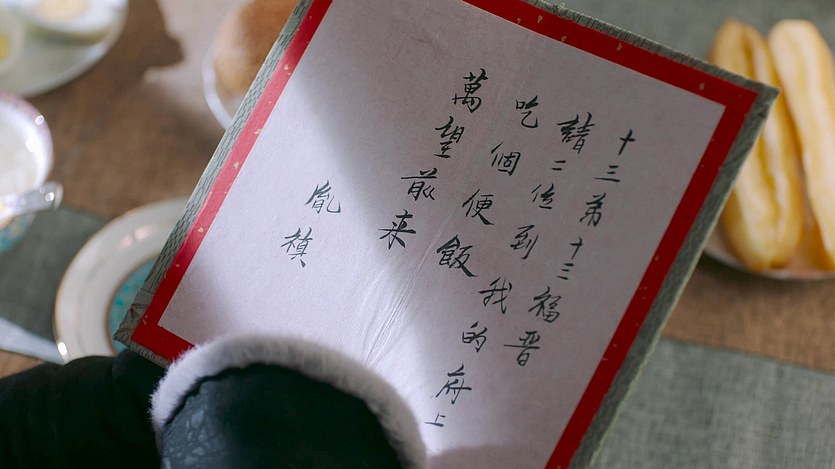 十三弟十三福晋
請二位到我的府上
吃個便飯
萬望前来
胤禛